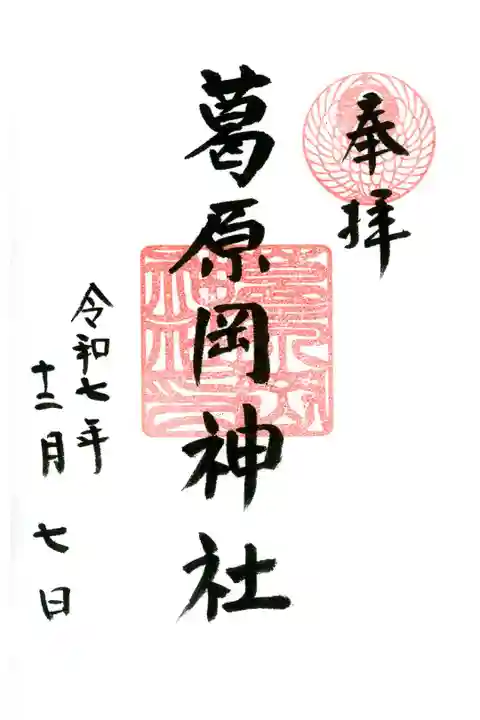 奉拝
葛原岡神社
令和七年
十二月七日